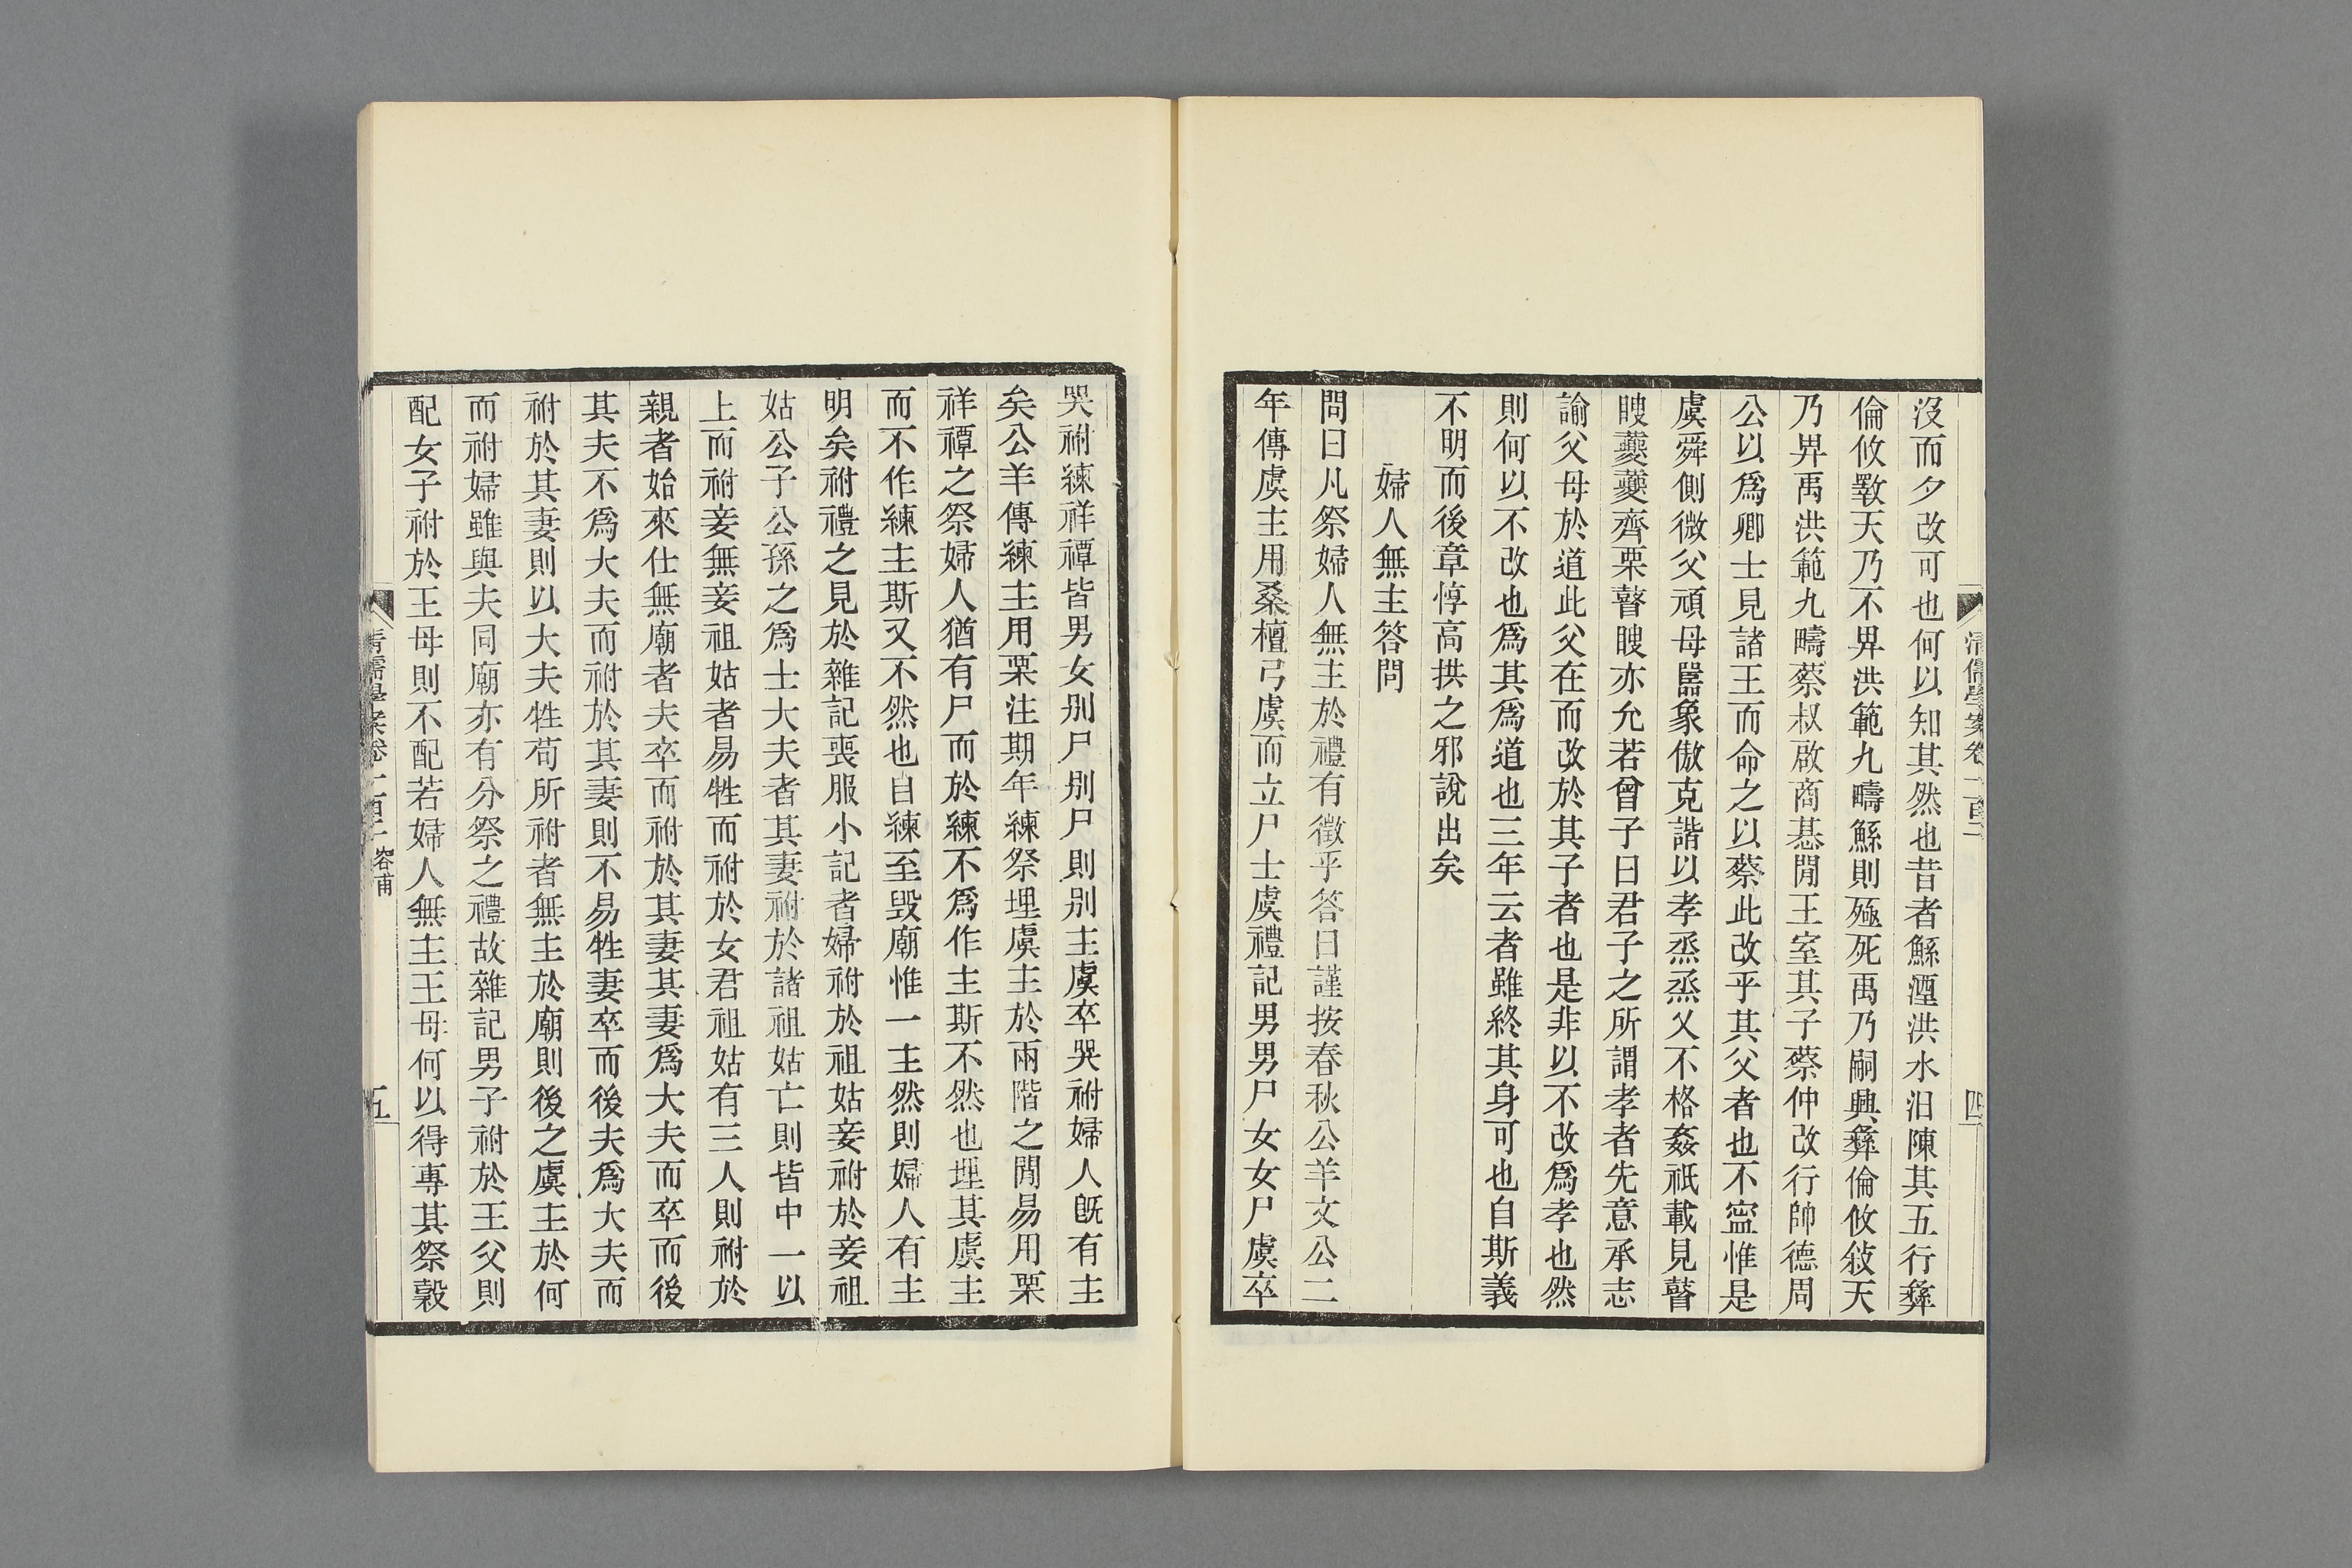 清儒學案卷一百二
四
沒而夕改可也何以知其然也昔者鯀湮洪水汩陳其五行彝
倫攸斁天乃不畀洪範九疇鯀則殛死禹乃嗣興彝倫攸敍天
乃畀禹洪範九疇蔡叔啟商惎閒王室其子蔡仲改行帥德周
公以爲卿士見諸王而命之以蔡此改乎其父者也不寍惟是
虞舜側微父頑母嚚象傲克諧以孝烝烝乂不格姦祇載見瞽
瞍夔夔齊栗瞽瞍亦允若曾子曰君子之所謂孝者先意承志
諭父母於道此父在而改於其子者也是非以不改爲孝也然
則何以不改也爲其爲道也三年云者雖終其身可也自斯義
不明而後章惇高拱之邪說出矣
婦人無主答問
問曰凡祭婦人無主於禮有徵乎答曰謹按春秋公羊文公二
年傳虞主用桑檀弓虞而立尸士虞禮記男男尸女女尸虞卒
哭祔練祥禫皆男女别尸別尸則别主虞卒哭祔婦人旣有主
矣公羊傳練主用栗注期年練祭埋虞主於兩階之閒易用栗
祥禫之祭婦人猶有尸而於練不爲作主斯不然也埋其虞主
而不作練主斯又不然也自練至毀廟惟一主然則婦人有主
明矣祔禮之見於雜記喪服小記者婦祔於祖姑妾祔於妾祖
姑公子公孫之爲士大夫者其妻祔於諸祖姑亡則皆中一以
上而祔妾無妾祖姑者易牲而祔於女君祖姑有三人則祔於
親者始來仕無廟者夫卒而祔於其妻其妻爲大夫而卒而後
其夫不爲大夫而祔於其妻則不易牲妻卒而後夫爲大夫而
祔於其妻則以大夫牲苟所祔者無主於廟則後之虞主於何
而祔婦雖與夫同廟亦有分祭之禮故雜記男子祔於王父則
配女子祔於王母則不配若婦人無主王母何以得專其祭穀
清儒學案卷一百二 容甫
五